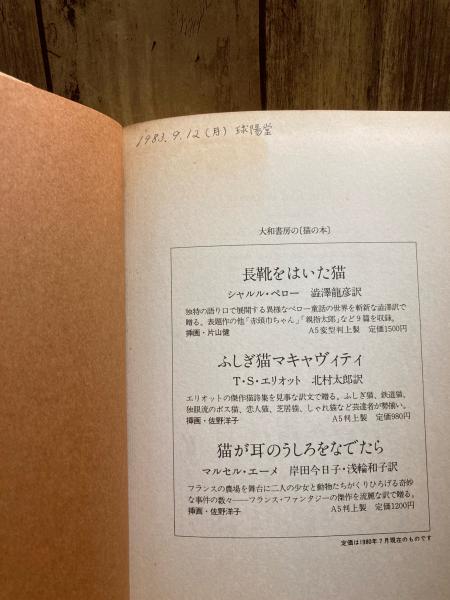 1983.9.12(月) 球陽堂
大和書房の〔猫の本〕
長靴をはいた猫
シャルル・ペロー 澁澤龍彦訳
独特の語り口で展開する異様なペロー童話の世界を斬新な澁澤訳で
贈る。表題作の他「赤頭巾ちゃん」「親指太郎」など9篇を収録。
挿画・片山健 A5変型判上製 定価1500円
ふしぎ猫マキャヴィティ
T・S・エリオット 北村太郎訳
エリオットの傑作猫詩集を見事な訳文で贈る。ふしぎ猫、鉄道猫、
独眼流のボス猫、恋人猫、芝居猫、しゃれ猫など芸達者が勢揃い。
挿画・佐野洋子 A5判上製 定価980円
猫が耳のうしろをなでたら
マルセル・エーメ 岸田今日子・浅輪和子訳
フランスの農場を舞台に二人の少女と動物たちがくりひろげる奇妙
な事件の数々——フランス・ファンタジーの傑作を流麗な訳で贈る。
挿画・佐野洋子 A5判上製 定価1200円
定価は1980年7月現在のものです